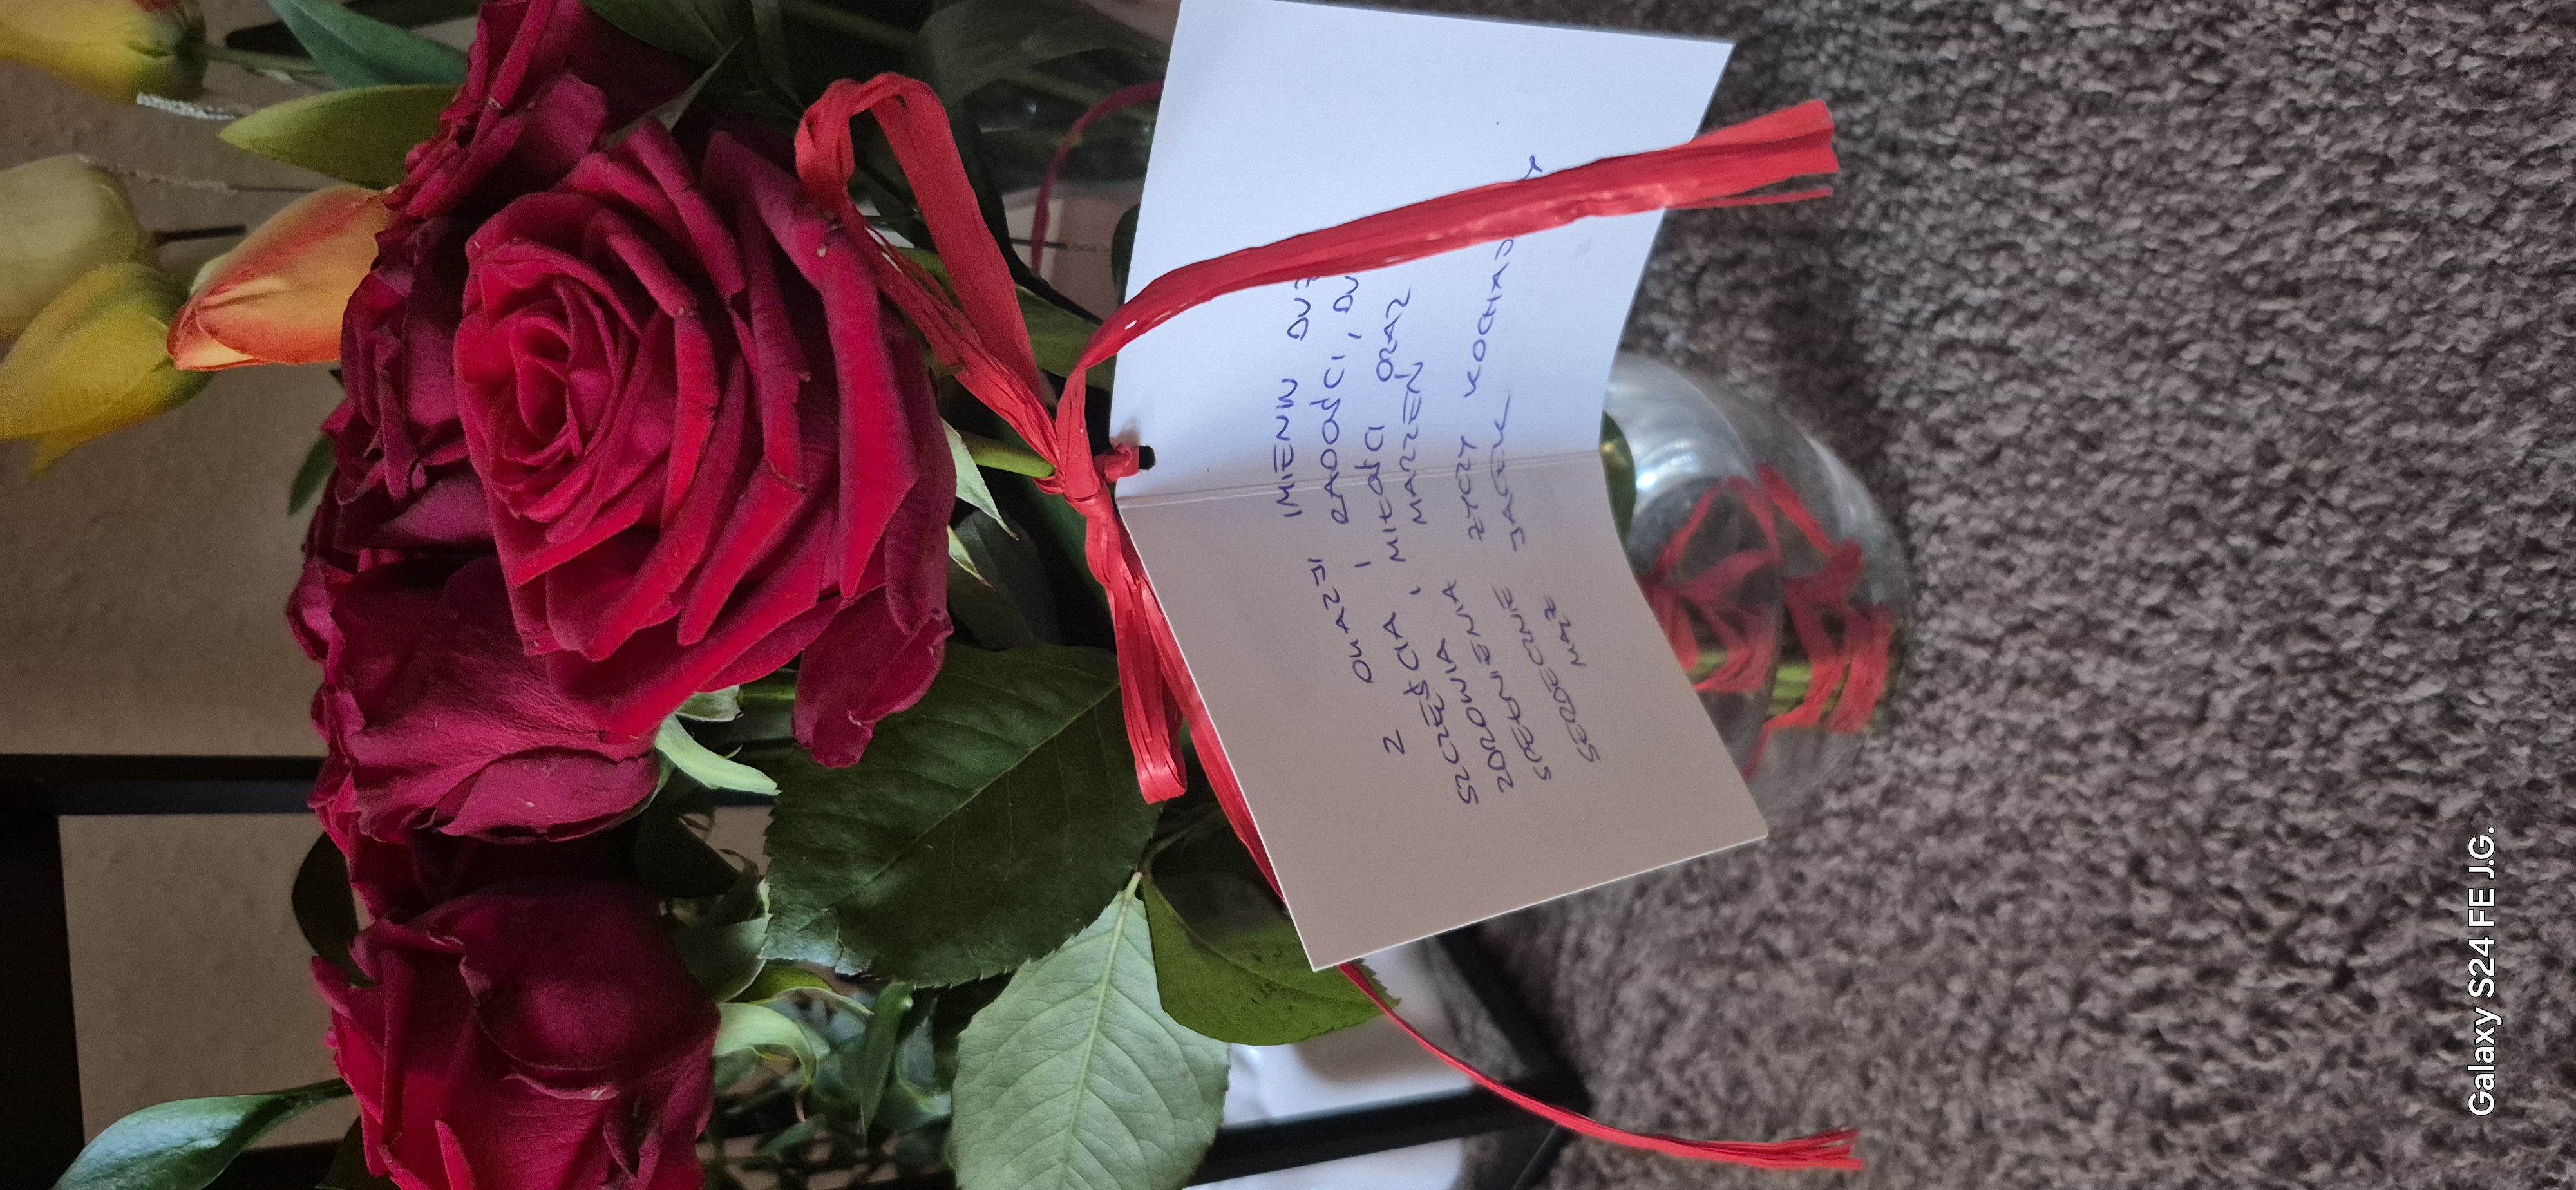 Z OKAZJI IMIENIN DUŻ
SZCZĘŚCIA I RADOŚCI, DU
ZDROWIA, MIŁOŚCI ORAZ
SPEŁNIENIA MARZEŃ
SERDECZNIE ŻYCZY KOCHAJ
MĄŻ JACEK
Galaxy S24 FE J.G.